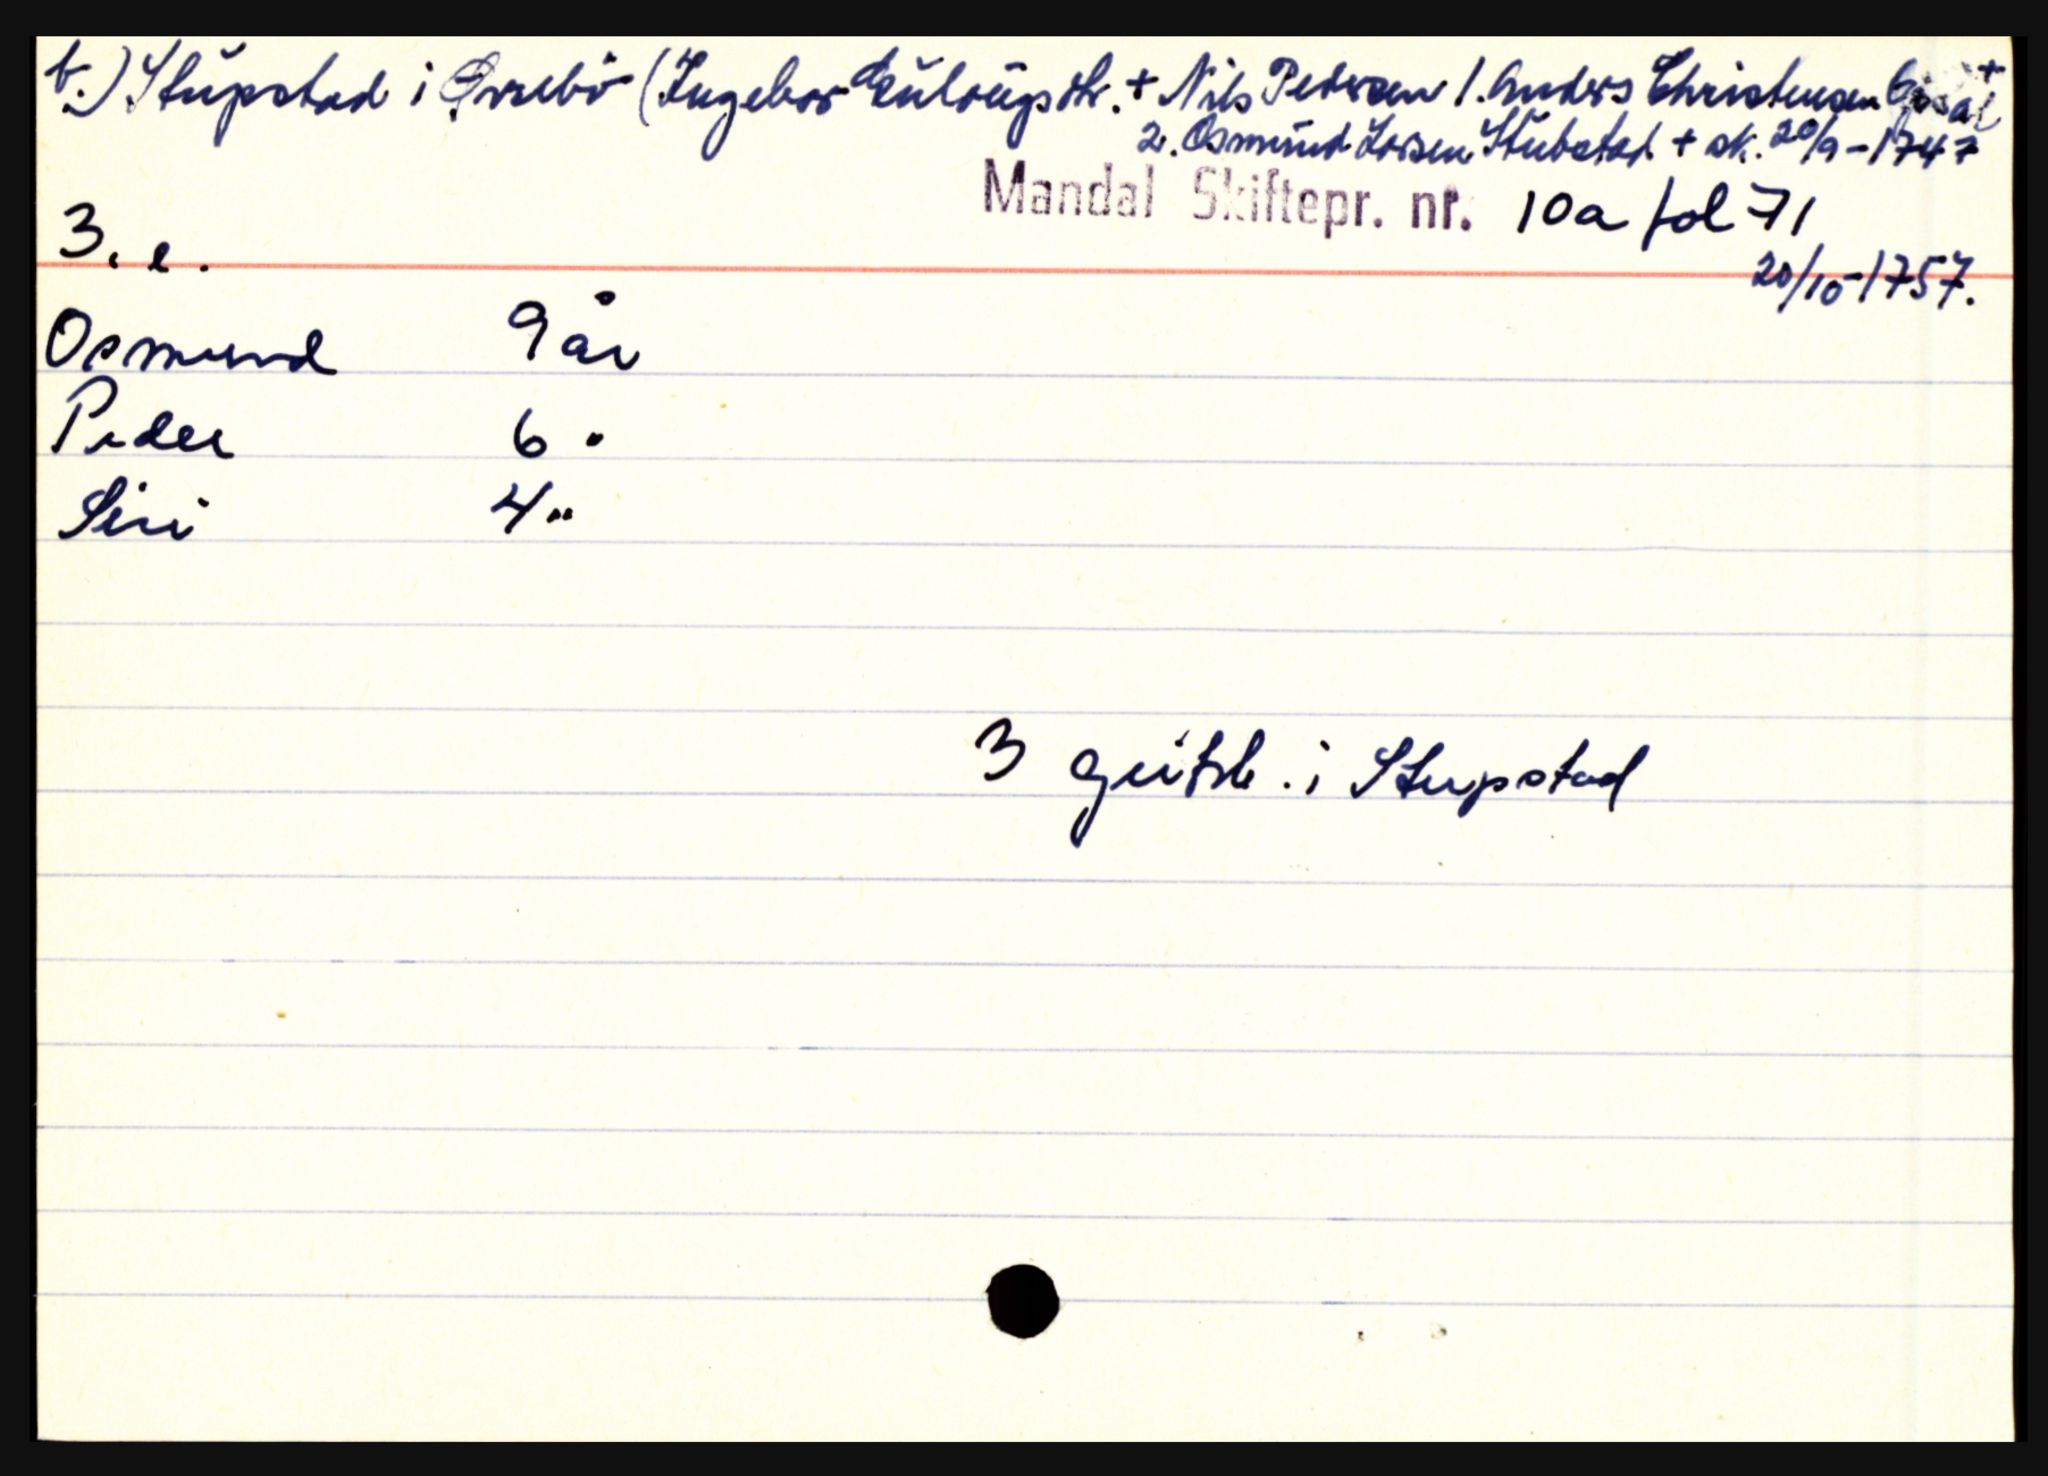 b.) Stupstad i Øvrebö (Ingebor Gulaugsdtr. + Nils Pedersen 1. Anders Christensen +
2. Osmund Larsen Stubstad + sk. 20/9-1747
Mandal Skiftepr. nr. 10a fol 71
3. e.
20/10-1757.
Osmund 9 år
Peder 6 "
Siri 4 "
3 gütsl. i Stupstad